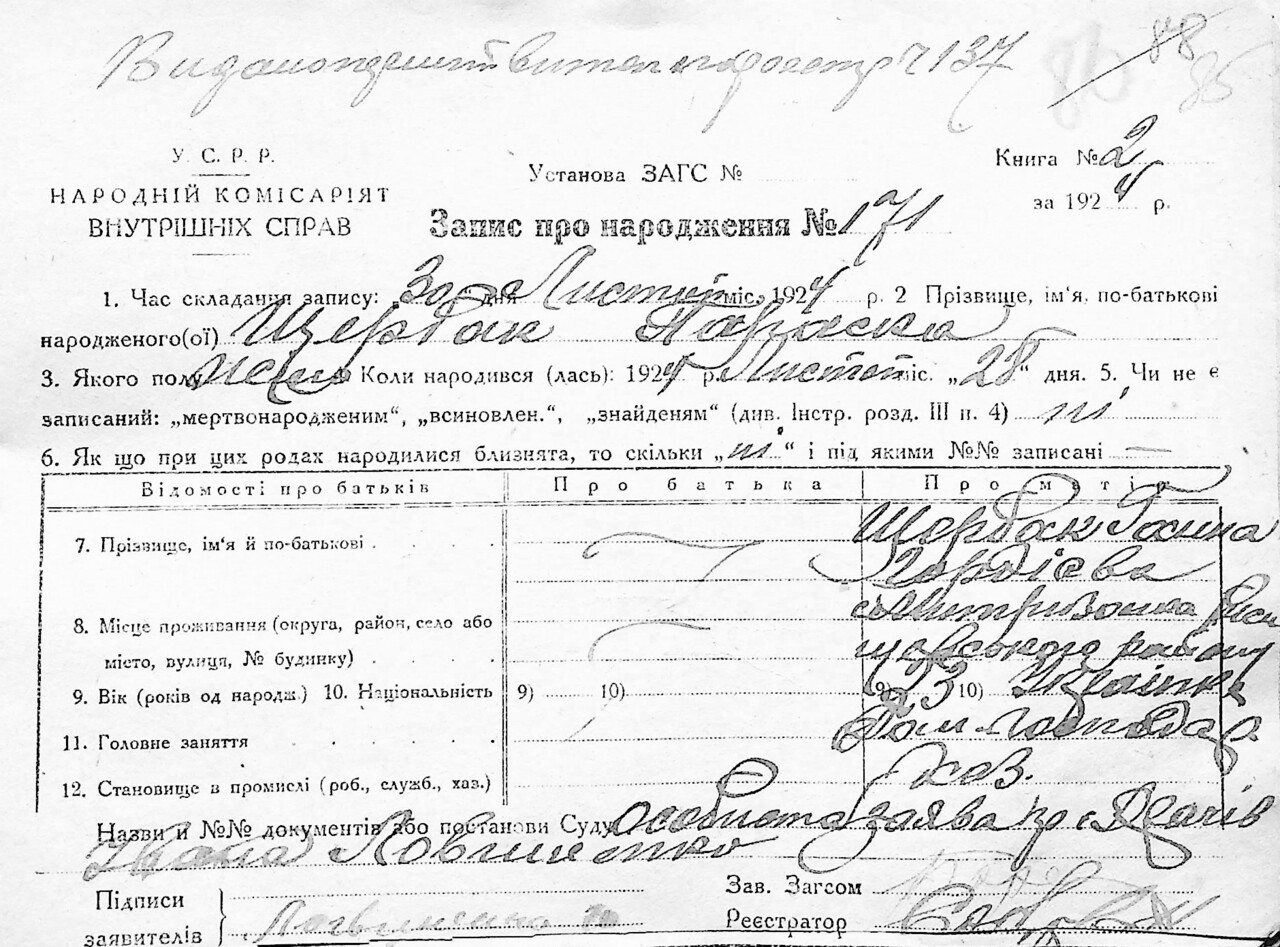 ч 137
88
86
У. С. Р. Р.
НАРОДНІЙ КОМІСАРІЯТ
ВНУТРІШНІХ СПРАВ
Установа ЗАГС №
Книга № 2
за 1924 р.
Запис про народження № 171
1. Час складання запису: „30“ дня Листоп міс. 1924 р. 2 Прізвище, ім'я, по-батькові
народженого(ої) Щербак Параска
3. Якого полу Жіно Коли народився (лась): 1924 р. Листоп міс. „28“ дня. 5. Чи не є
записаний: „мертвонародженим“, „всиновлен.“, „знайденям“ (див. Інстр. розд. III п. 4) ні
6. Як що при цих родах народилися близнята, то скільки „ні“ і під якими №№ записані —
Відомості про батьків Про батька Про матір
7. Прізвище, ім'я й по-батькові Щербак Ганна
Гордієва
8. Місце проживання (округа, район, село або
місто, вулиця, № будинку)
с. Митризовка Риси
щовського району
9. Вік (років од народж.) 10. Національність 9) 10) 9) 23 10) Українка
11. Головне заняття Дом-господар
12. Становище в промислі (роб., служб., хаз.) хаз.
Назви й №№ документів або постанови Суду Особиста заява гр с. Дгачів
Івана Ловгиненко
Підписи
заявителів
Зав. Загсом
Реєстратор